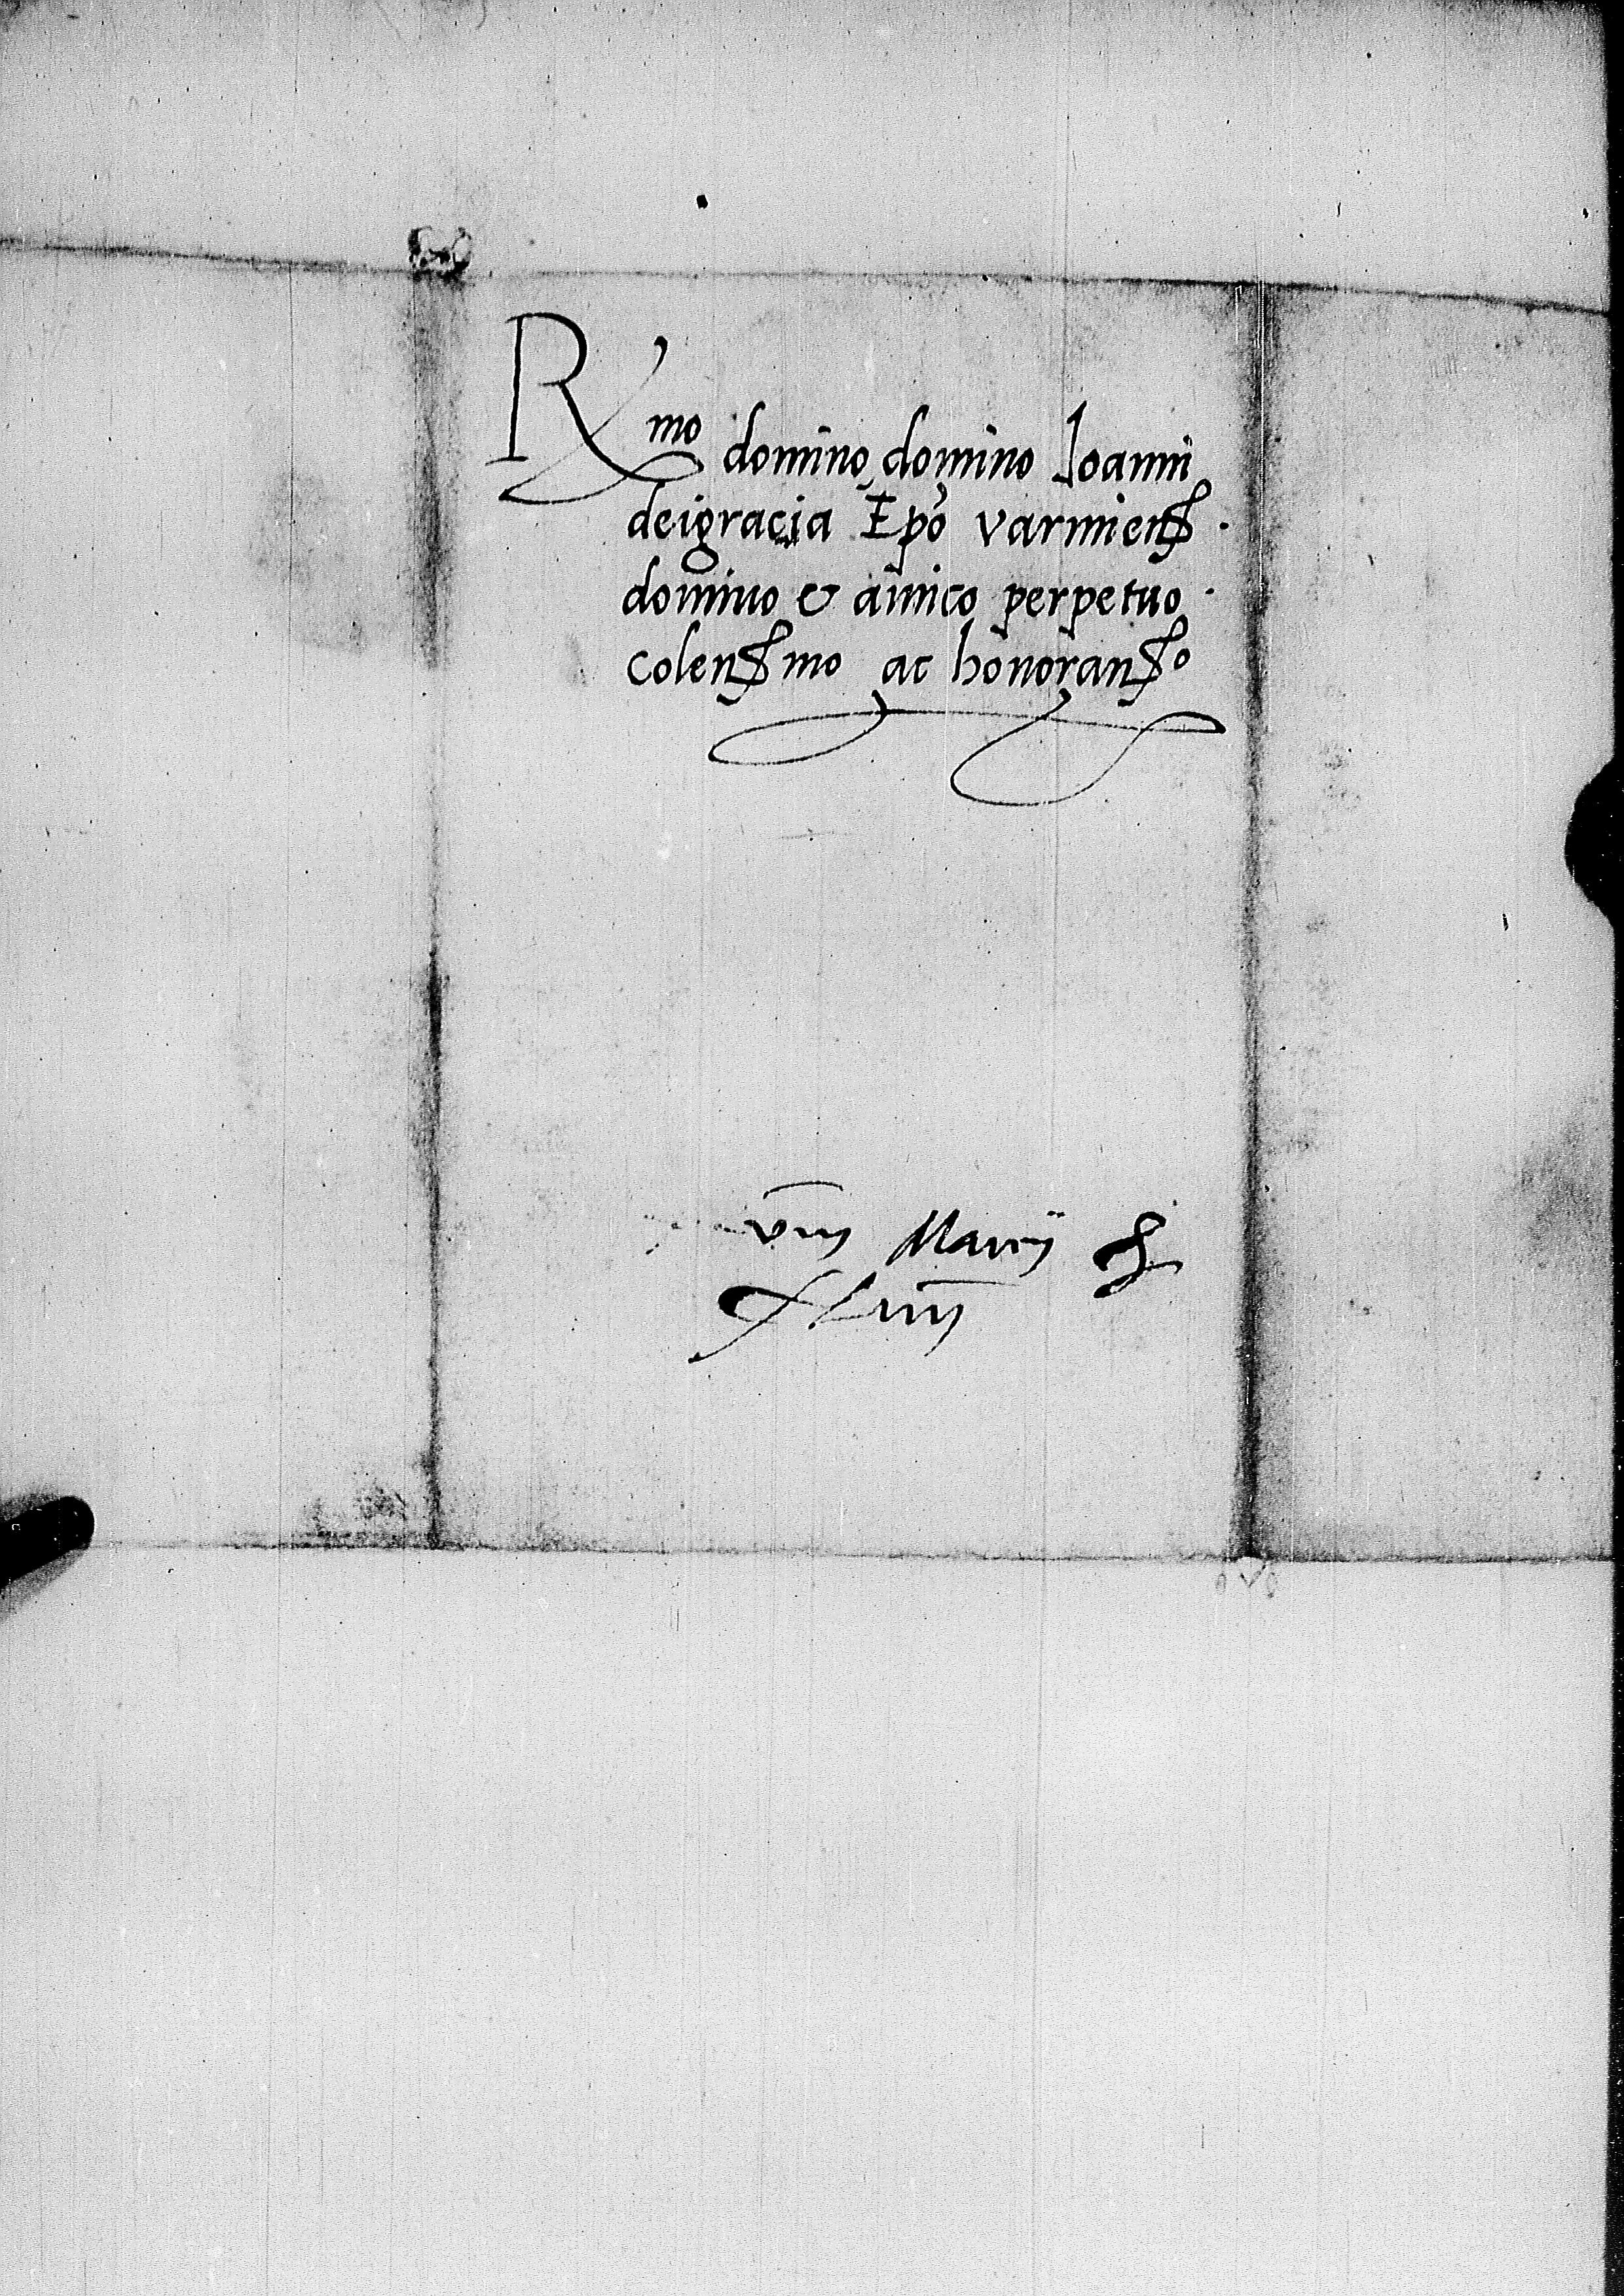 Rmo domino domino Ioanni
deigracia Epo varmiens.
domino & amico perpetuo.
colensmo ac honoranso
viii Marcij
xLiiii